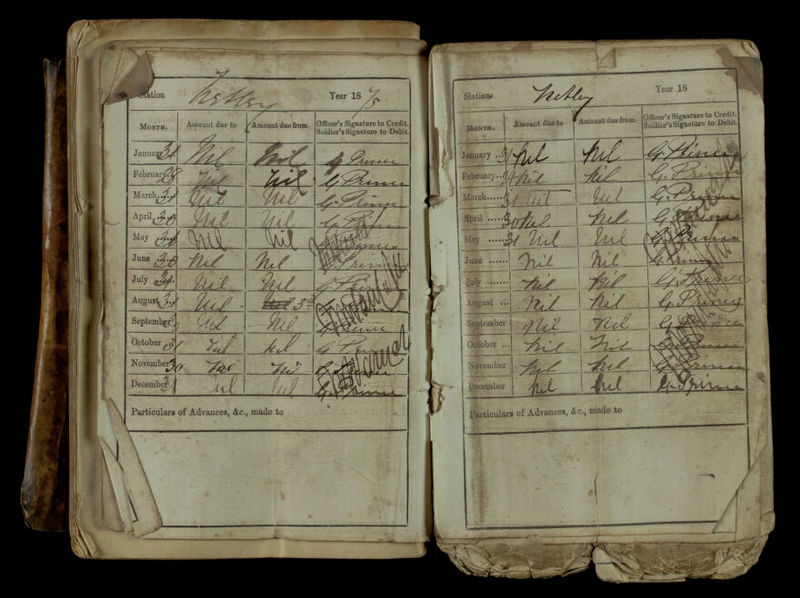 Station Netley Year 18
Month. Amount due to Amount due from Officer's Signature to Credit. Soldier's Signature to Debit.
January 31 Nil Nil G Prince
February 28 Nil Nil G Prince
March 31 Nil Nil G. Prince
April 30 Nil Nil G Prince
May 31 Nil Nil Prince
June 30 Nil Nil Prince
July 31 Nil Nil
August 31 Nil
September Nil Nil Prince
October 31 Nil Nil G Prince
November 30 Nil Nil
December 31 Nil Nil G. Prince
Particulars of Advances, &c., made to
Station Netley Year 18
Month. Amount due to Amount due from Officer's Signature to Credit. Soldier's Signature to Debit.
January 31 Nil Nil G. Prince
February Nil Nil G. Prince
March 31 Nil Nil G. Prince
April 30 Nil Nil G. Prince
May 31 Nil Nil G. Prince
June Nil Nil G Prince
July Nil Nil G. Prince
August Nil Nil G. Prince
September Nil Nil G. Prince
October Nil Nil G Prince
November Nil Nil G Prince
December Nil Nil G. Prince
Particulars of Advances, &c., made to